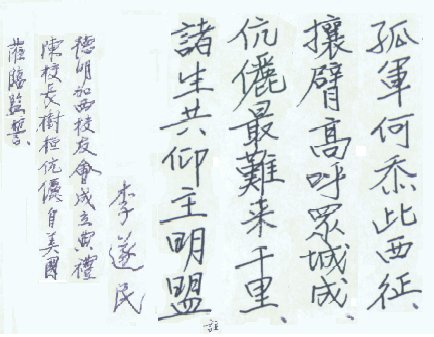 孤軍何忝此西征、
攘臂高呼眾城成、
伉儷最難来千里、
諸生共仰主明盟
註
李遂民
德明加西校友會成立典禮
陳校長樹桓伉儷自美國
蒞臨監誓、